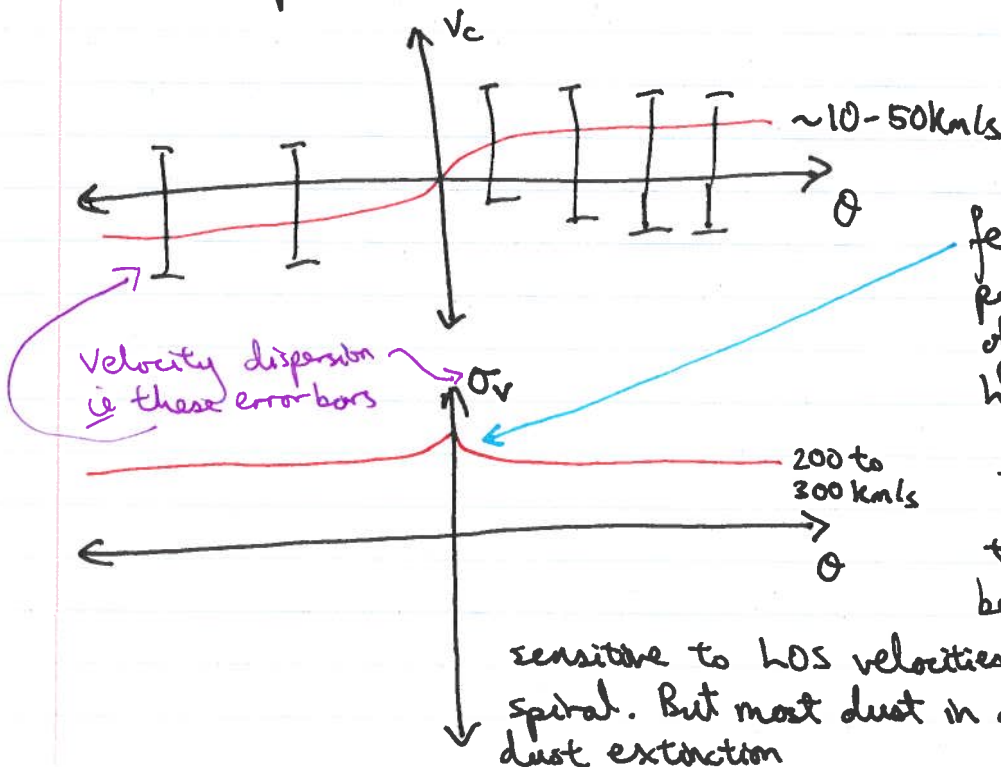 Vc
~10-50km/s
θ
fe
velocity dispersion
ie these errorbars
σv
200 to
300 km/s
θ
sensitive to LOS velocities
spiral. But most dust in
dust extinction